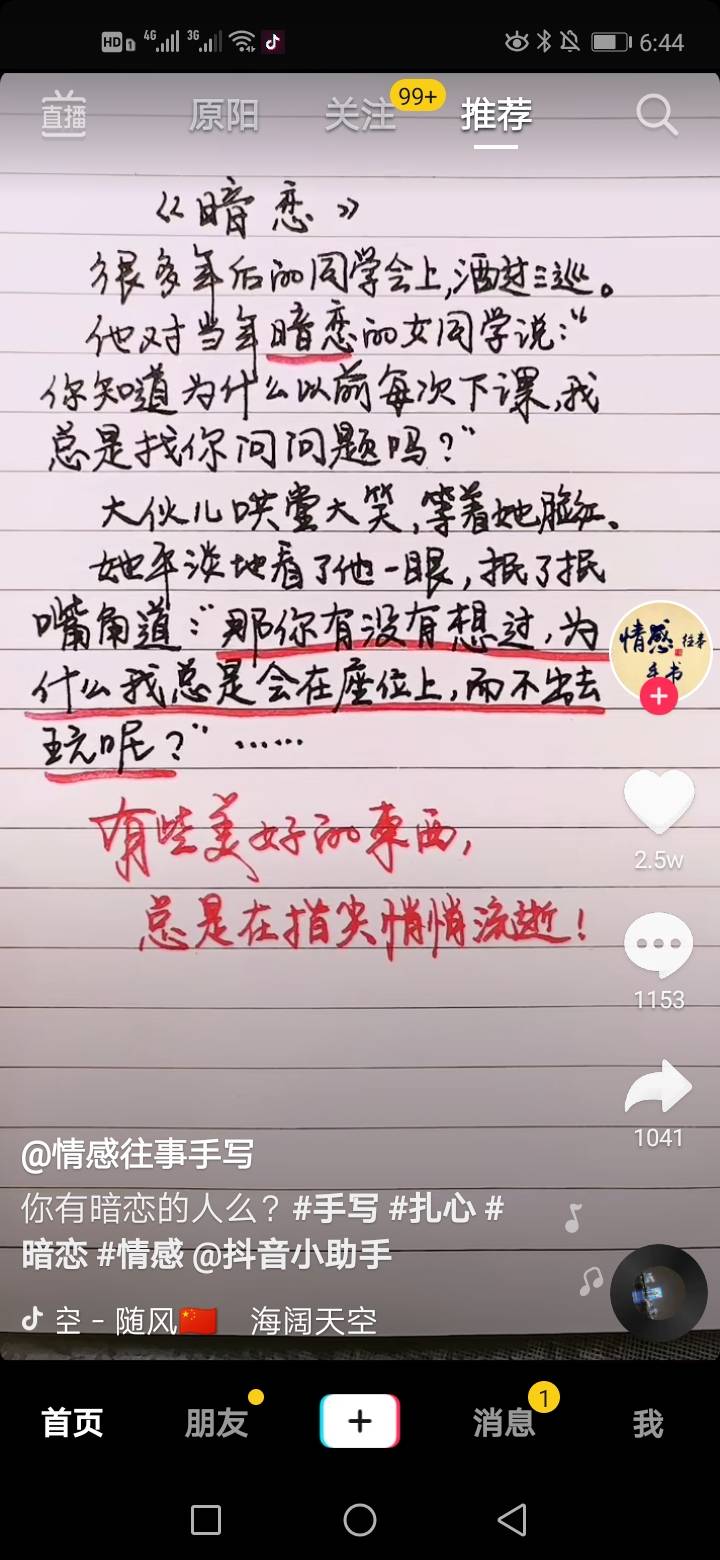 HD 1 4G 3G 6:44
直播 原阳 关注 99+ 推荐
《暗恋》
很多年后的同学会上,酒过三巡。
他对当年暗恋的女同学说:“
你知道为什么以前每次下课,我
总是找你问问题吗?”
大伙儿哄堂大笑,等着她脸红、
她平淡地看了他一眼,抿了抿
嘴角道:“那你有没有想过,为
什么我总是会在座位上,而不出去
玩呢?”……
有些美好的東西,
总是在指尖悄悄流逝!
情感往事
手书
2.5w
1153
1041
@情感往事手写
你有暗恋的人么?#手写 #扎心 #
暗恋 #情感 @抖音小助手
空 - 随风🇨🇳 海阔天空
首页 朋友 + 消息 1 我